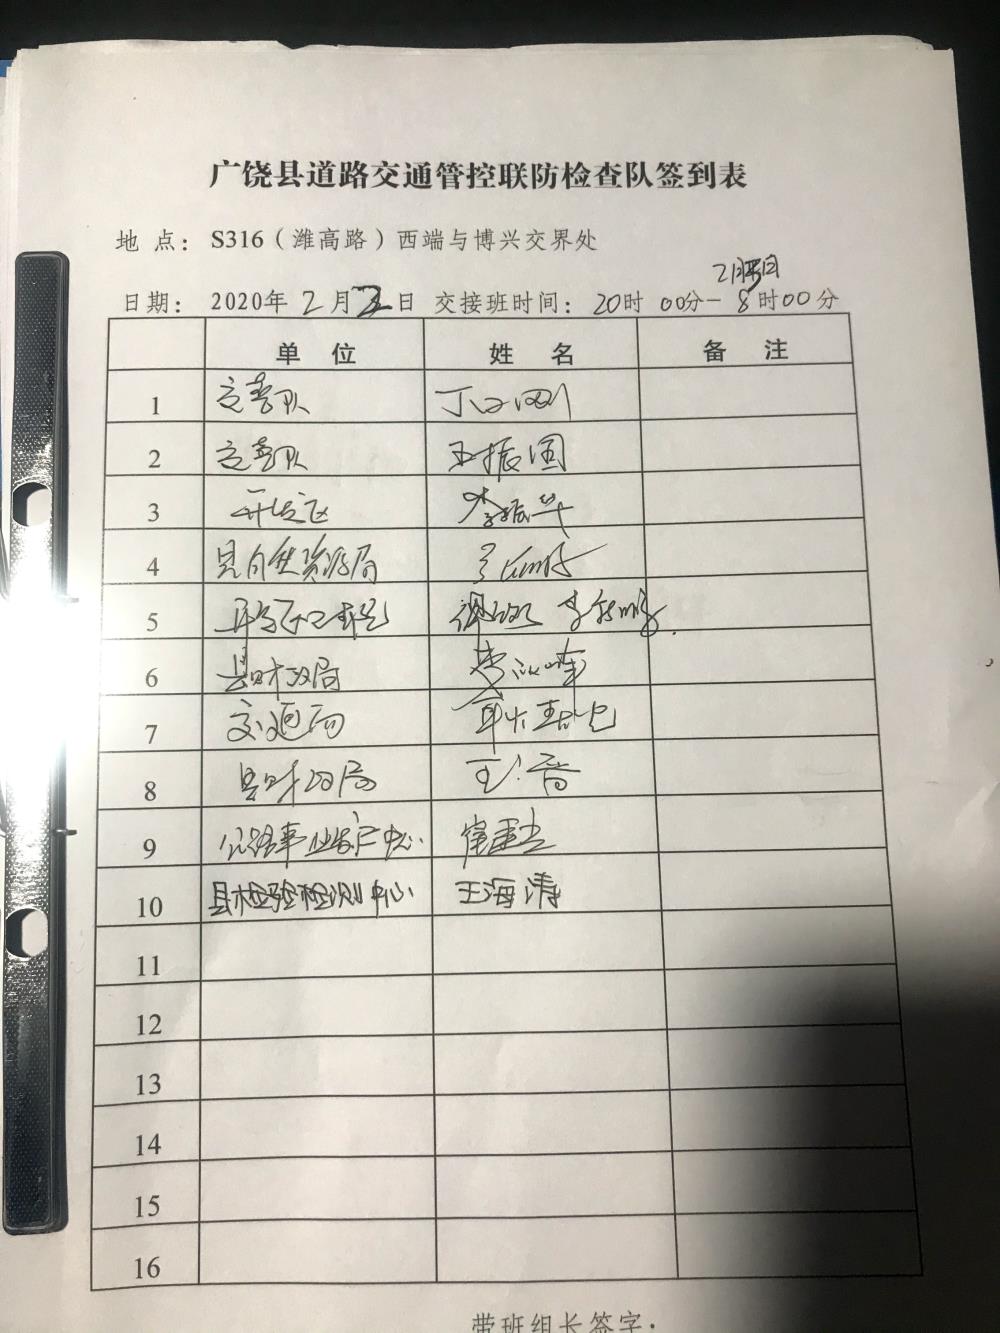 广饶县道路交通管控联防检查队签到表
地 点: S316（潍高路）西端与博兴交界处
2月 日
日期: 2020年 2月 日 交接班时间: 20时 00分-8时00分
单 位 姓 名 备 注
1 交警队
2 交警队 王振国
3 开发区 李振华
4 县自然资源局
5
6 县财政局
7 交通局
8 县财政局 王晋
9 公路事业发展中心 崔建吉
10 县检验检测中心 王海涛
11
12
13
14
15
16
带班组长签字: